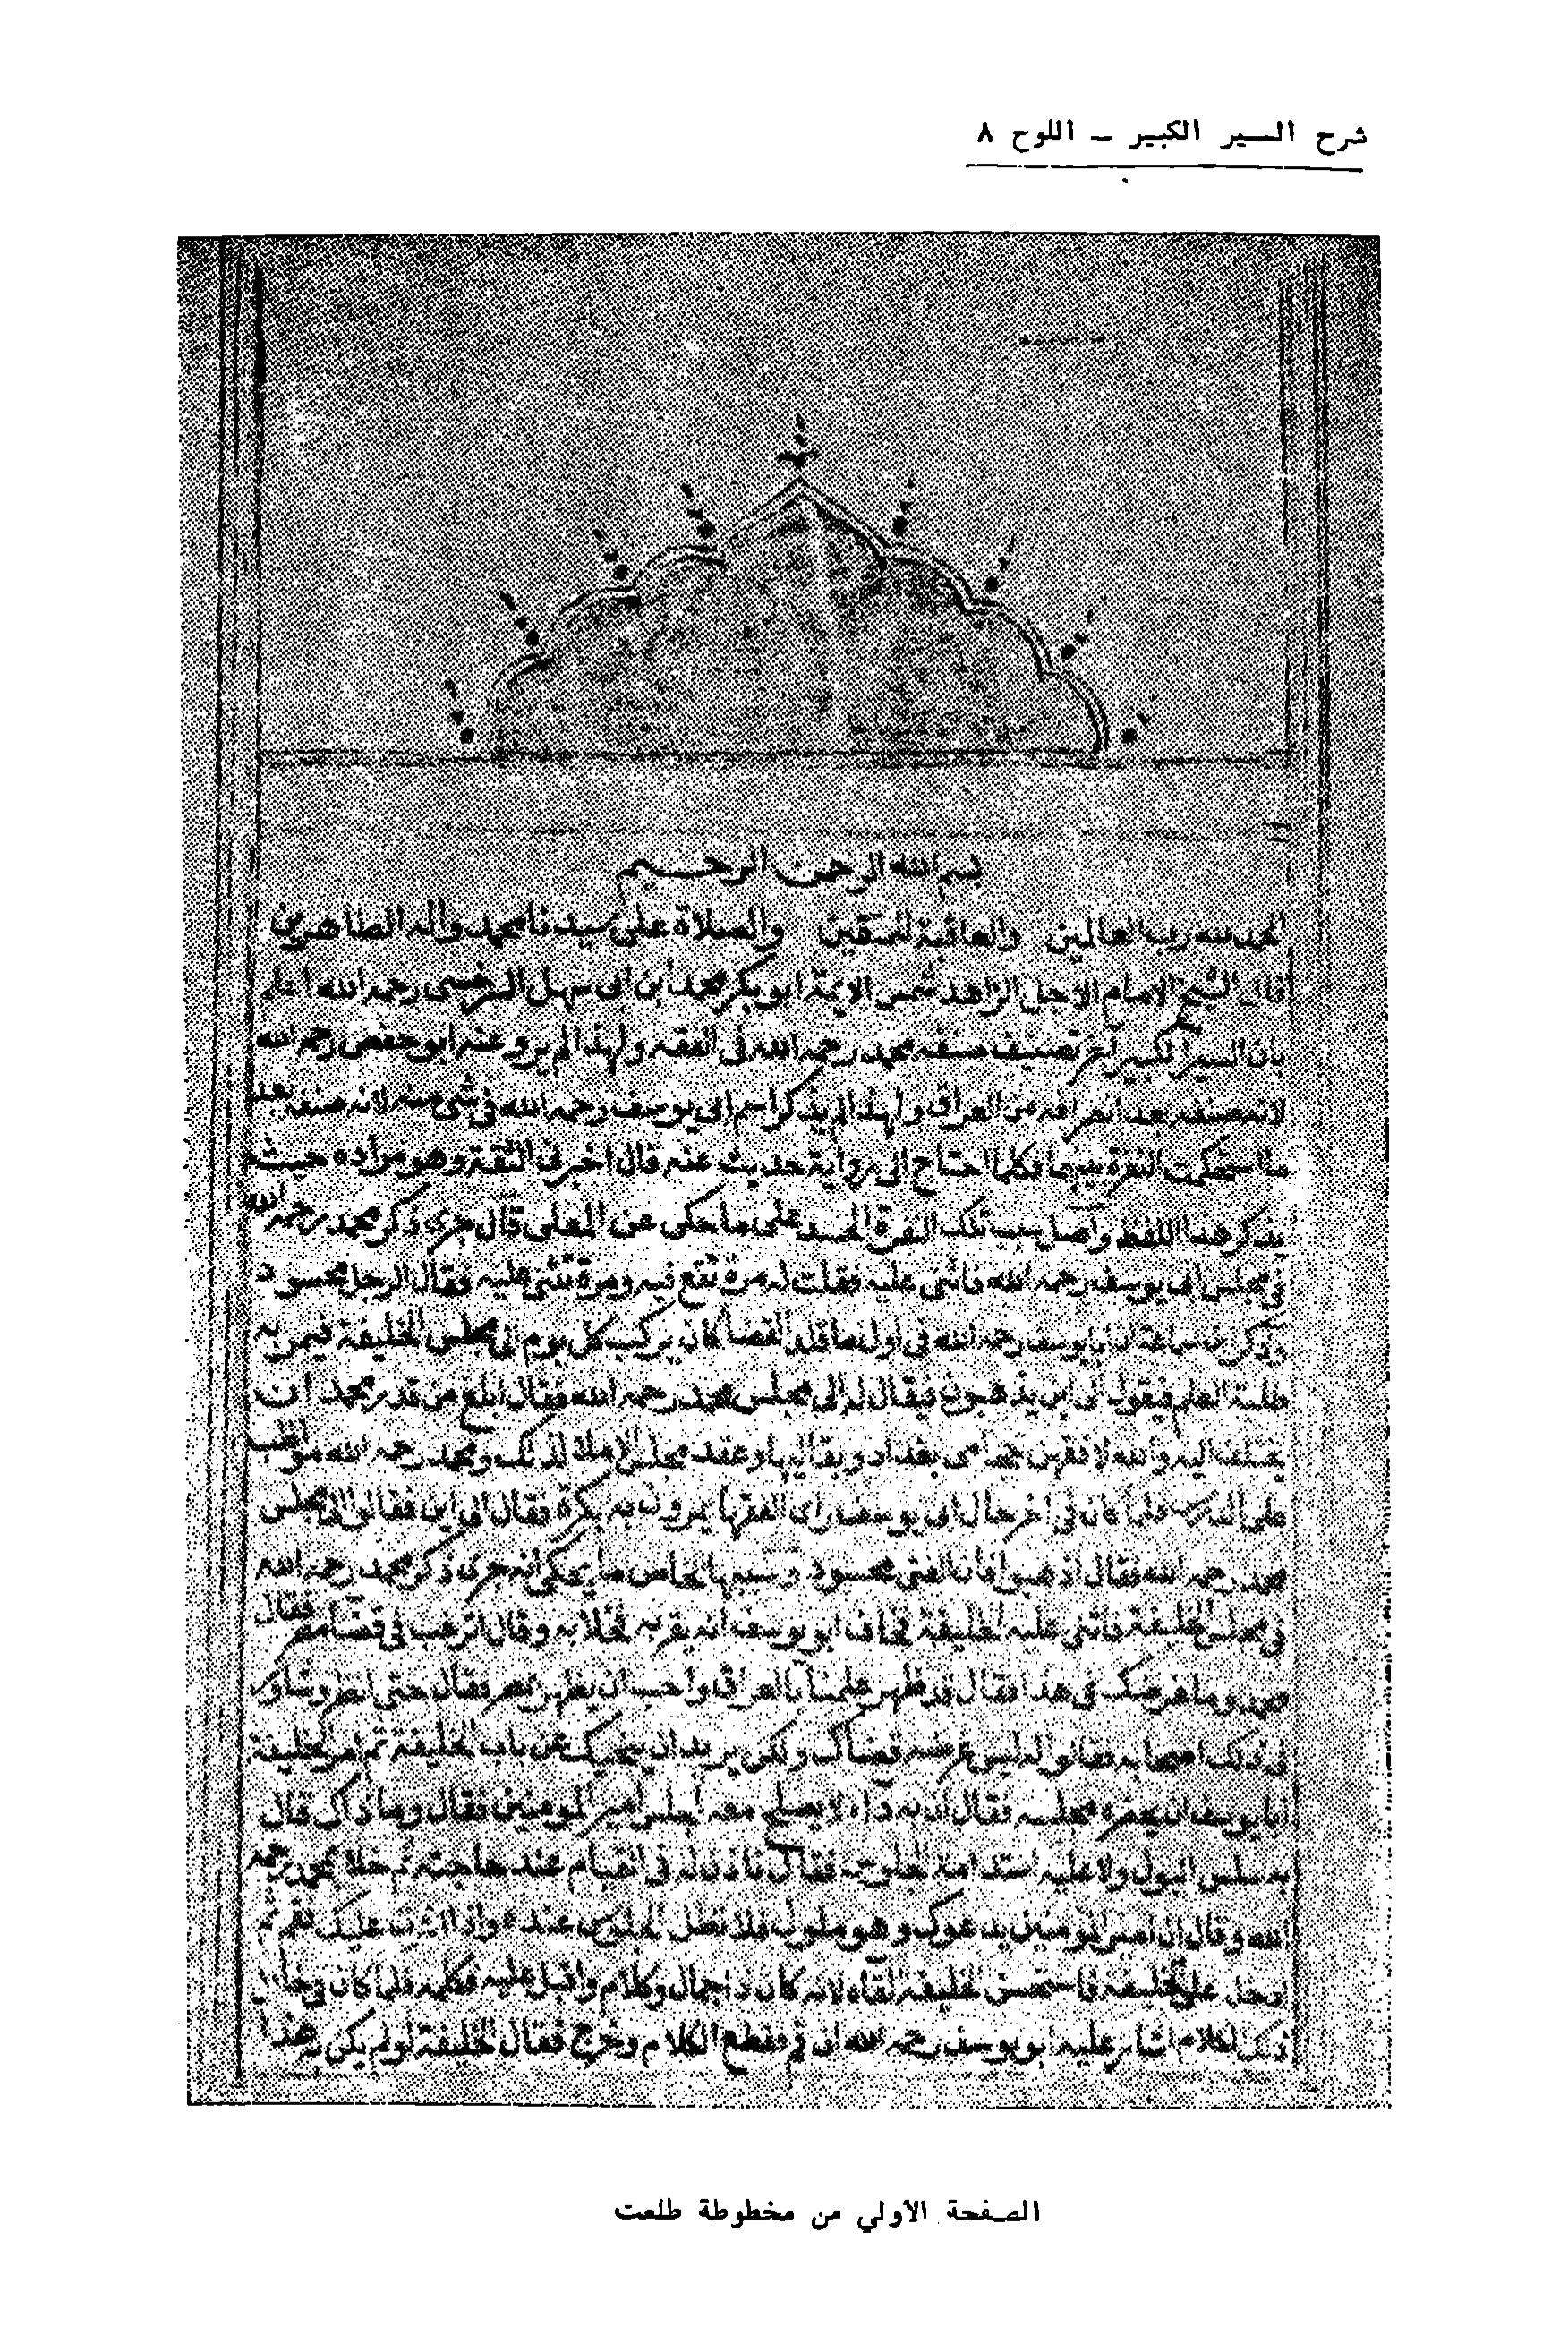 شرح السير الكبير – اللوح ٨
بسم الله الرحمن الرحيم
الحمد لله رب العالمين والعاقبة للمتقين والصلاة على سيدنا محمد واله الطاهرين
قال الشيخ الامام الاجل الزاهد شمس الايمة ابو بكر محمد ابن ابى سهل السرخسى رحمه الله اعلم
بان السير الكبير اخر تصنيف صنفه محمد رحمه الله فى الفقه ولهذا لم يرو عنه ابو حفص رحمه الله
لانه صنفه بعد انصرافه من العراق ولهذا لم يذكر اسم ابى يوسف رحمه الله فى شئ منه لانه صنفه بعد
ما استحكمت النفرة بينهما وكلما احتاج الى رواية حديث عنه قال اخبرنى الثقة وهو مراده حيث
يذكر هذا اللفظ واصل سبب تلك النفرة الحسد على ما حكى عن المعلى قال جرى ذكر محمد رحمه الله
فى مجلس ابى يوسف رحمه الله فاثنى عليه فقلت له مرة تقع فيه ومرة تثنى عليه فقال الرجل محسود
وذكر ابن سماعة ان ابا يوسف رحمه الله فى اول ما قلد القضا كان يركب كل يوم الى مجلس الخليفة فيمر به
طلبة العلم فيقول الى اين يذهبون فيقال له الى مجلس محمد رحمه الله فقال ابلغ من قدر محمد ان
يختلف اليه والله لافقهن حجامى بغداد وبقاليها وعقد مجلس الاملا لذلك ومحمد رحمه الله مواظب
على الدرس فلما كان فى اخر حال ابى يوسف راى الفقها يمرون به بكرة فقال الى اين فقالوا الى مجلس
محمد رحمه الله فقال اذهبوا فان الفتى محسود وسببها الخاص ما يحكى انه جرى ذكر محمد رحمه الله
فى مجلس الخليفة فاثنى عليه الخليفة فخاف ابو يوسف انه يقربه فخلا به وقال اترغب فى قضا مصر فقال
محمد وما غرضك فى هذا فقال قد ظهر علمنا بالعراق واحب ان يظهر بمصر فقال حتى انظر وشاور
فى ذلك اصحابه فقالوا له ليس غرضه قضاك ولكن يريد ان ينحيك عن باب الخليفة ثم امر الخليفة
ابا يوسف ان يحضره مجلسه فقال ان به داء لا يصلح معه لمجلس امير المومنين فقال وما ذاك قال
به سلس البول ولا عليه استدامة الجلوس فقال ناذن له فى القيام عند حاجته ثم خلا بمحمد رحمه
الله وقال ان امير المومنين يدعوك وهو ملول فلا تطل الجلوس عنده واذا اشرت عليك فقم ثم
دخل على الخليفة فاستحسن الخليفة لقاه لانه كان ذا جمال وكلام واقبل عليه فكلمه فلما كان فى خلال
ذلك الكلام اشار عليه ابو يوسف رحمه الله ان قم فقطع الكلام وخرج فقال الخليفة لو لم يكن به هذا
الصفحة الاولي من مخطوطة طلعت